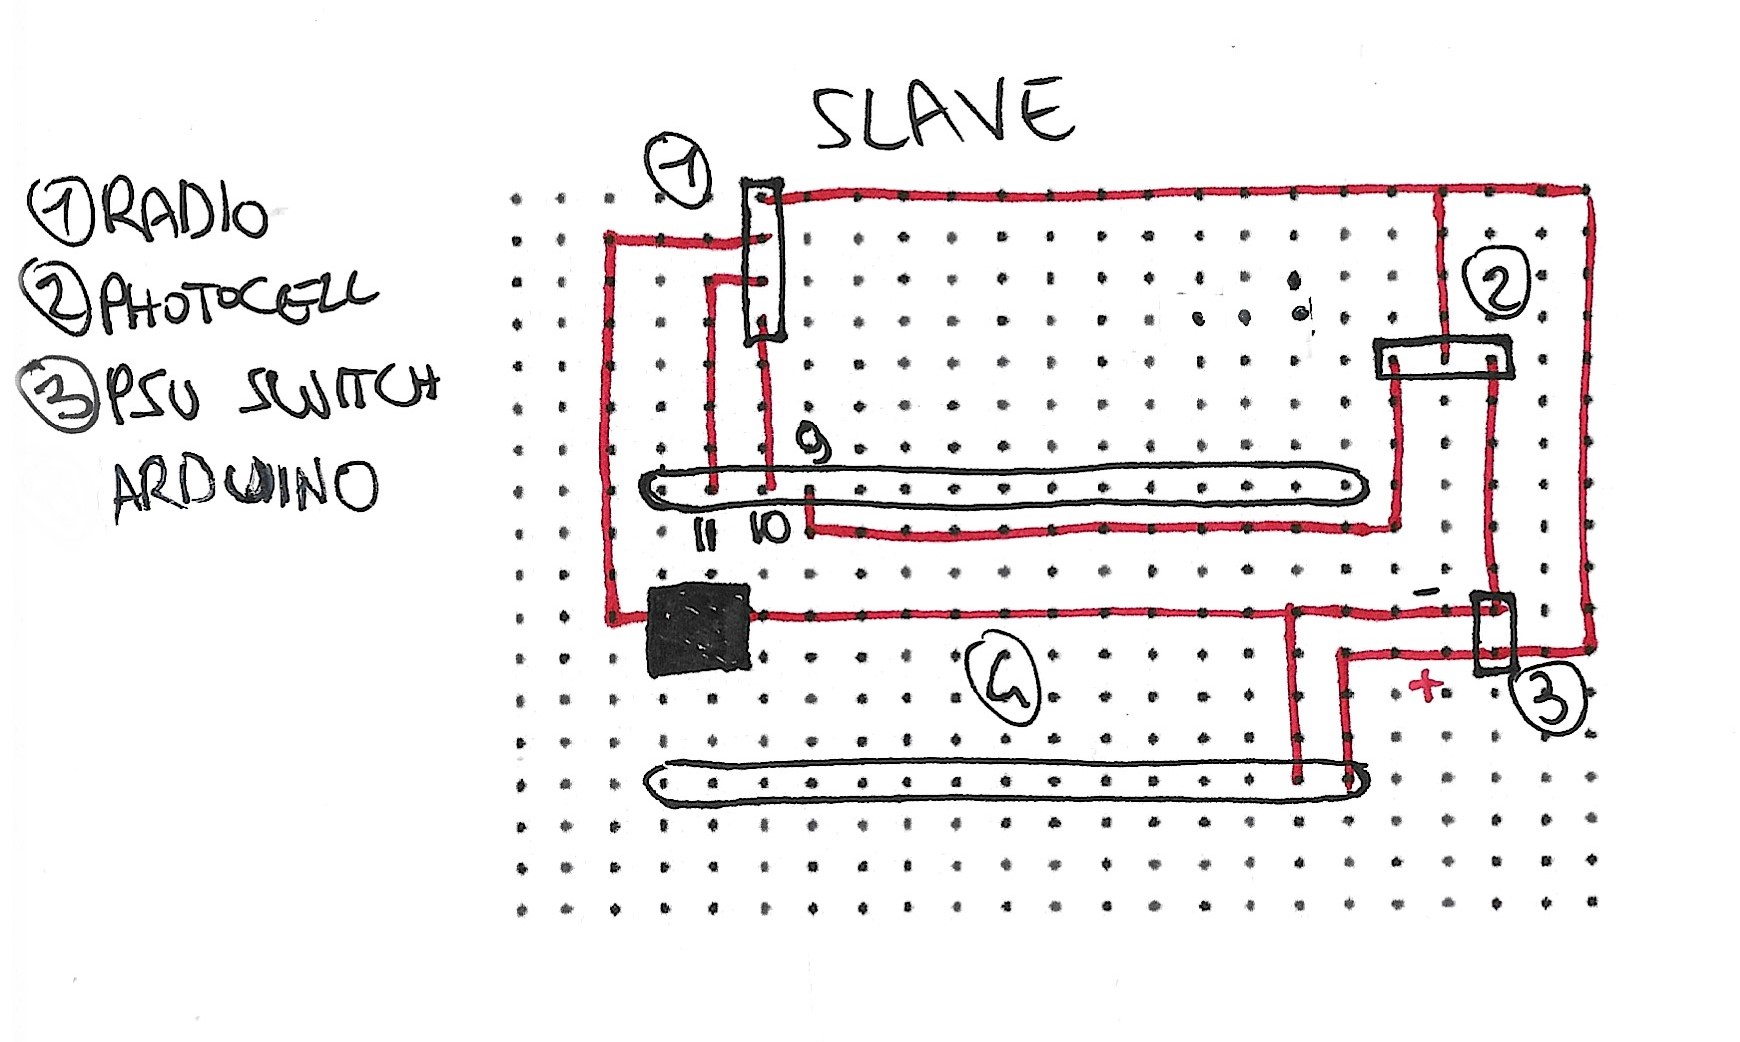 SLAVE
① RADIO
② PHOTOCELL
③ PSU SWITCH
ARDUINO
①
②
9
11 10
-
+
③